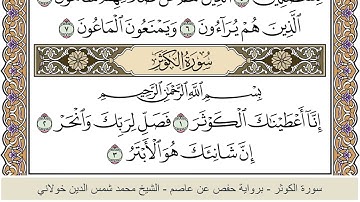 ٱلَّذِينَ هُمْ يُرَآءُونَ ٦ وَيَمْنَعُونَ ٱلْمَاعُونَ ٧
سُورَةُ ٱلْكَوْثَرِ
بِسْمِ ٱللَّهِ ٱلرَّحْمَٰنِ ٱلرَّحِيمِ
إِنَّآ أَعْطَيْنَٰكَ ٱلْكَوْثَرَ ١ فَصَلِّ لِرَبِّكَ وَٱنْحَرْ ٢
إِنَّ شَانِئَكَ هُوَ ٱلْأَبْتَرُ ٣
سورة الكوثر - برواية حفص عن عاصم - الشيخ محمد شمس الدين خولاني